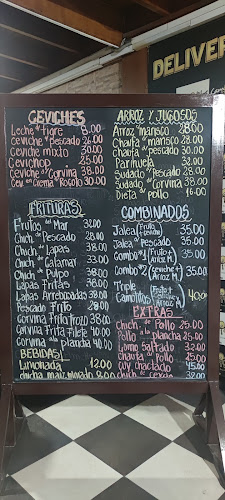 DELIVER
CEVICHES
Leche d' Tigre 8.00
Ceviche d' Pescado 26.00
Ceviche Mixto 30.00
Cevichop 25.00
Ceviche d' Corvina 38.00
Cev. en Crema d' Rocoto 30.00
FRITURAS
Frutos del Mar 32.00
Chich. de Pescado 28.00
Chich. de Lapas 38.00
Chich. de Calamar 33.00
Chich. de Pulpo 38.00
Lapas Fritas 38.00
Lapas Arrebozadas 38.00
Pescado Frito 28.00
Corvina Frita Trozo 38.00
Corvina Frita Filete 40.00
Corvina a la plancha 40.00
BEBIDAS
Limonada 12.00
Chicha maiz morado 8.00
ARROZ Y JUGOSOS
Arroz d' marisco 28.00
Chaufa d' marisco 28.00
Chaufa d' pescado 30.00
Parihuela 32.00
Sudado d' Pescado 28.00
Sudado d' Corvina 38.00
Dieta d' pollo 16.00
COMBINADOS
Jalea 35.00
Jalea d' Pescado 35.00
Combo #1 35.00
Combo #2 35.00
Triple
40.00
EXTRAS
Chich. de Pollo 25.00
Pollo a la plancha 25.00
Lomo Saltado 32.00
Chaufa d' Pollo 25.00
Cuy chactado 45.00
Chich. de cerdo 32.00